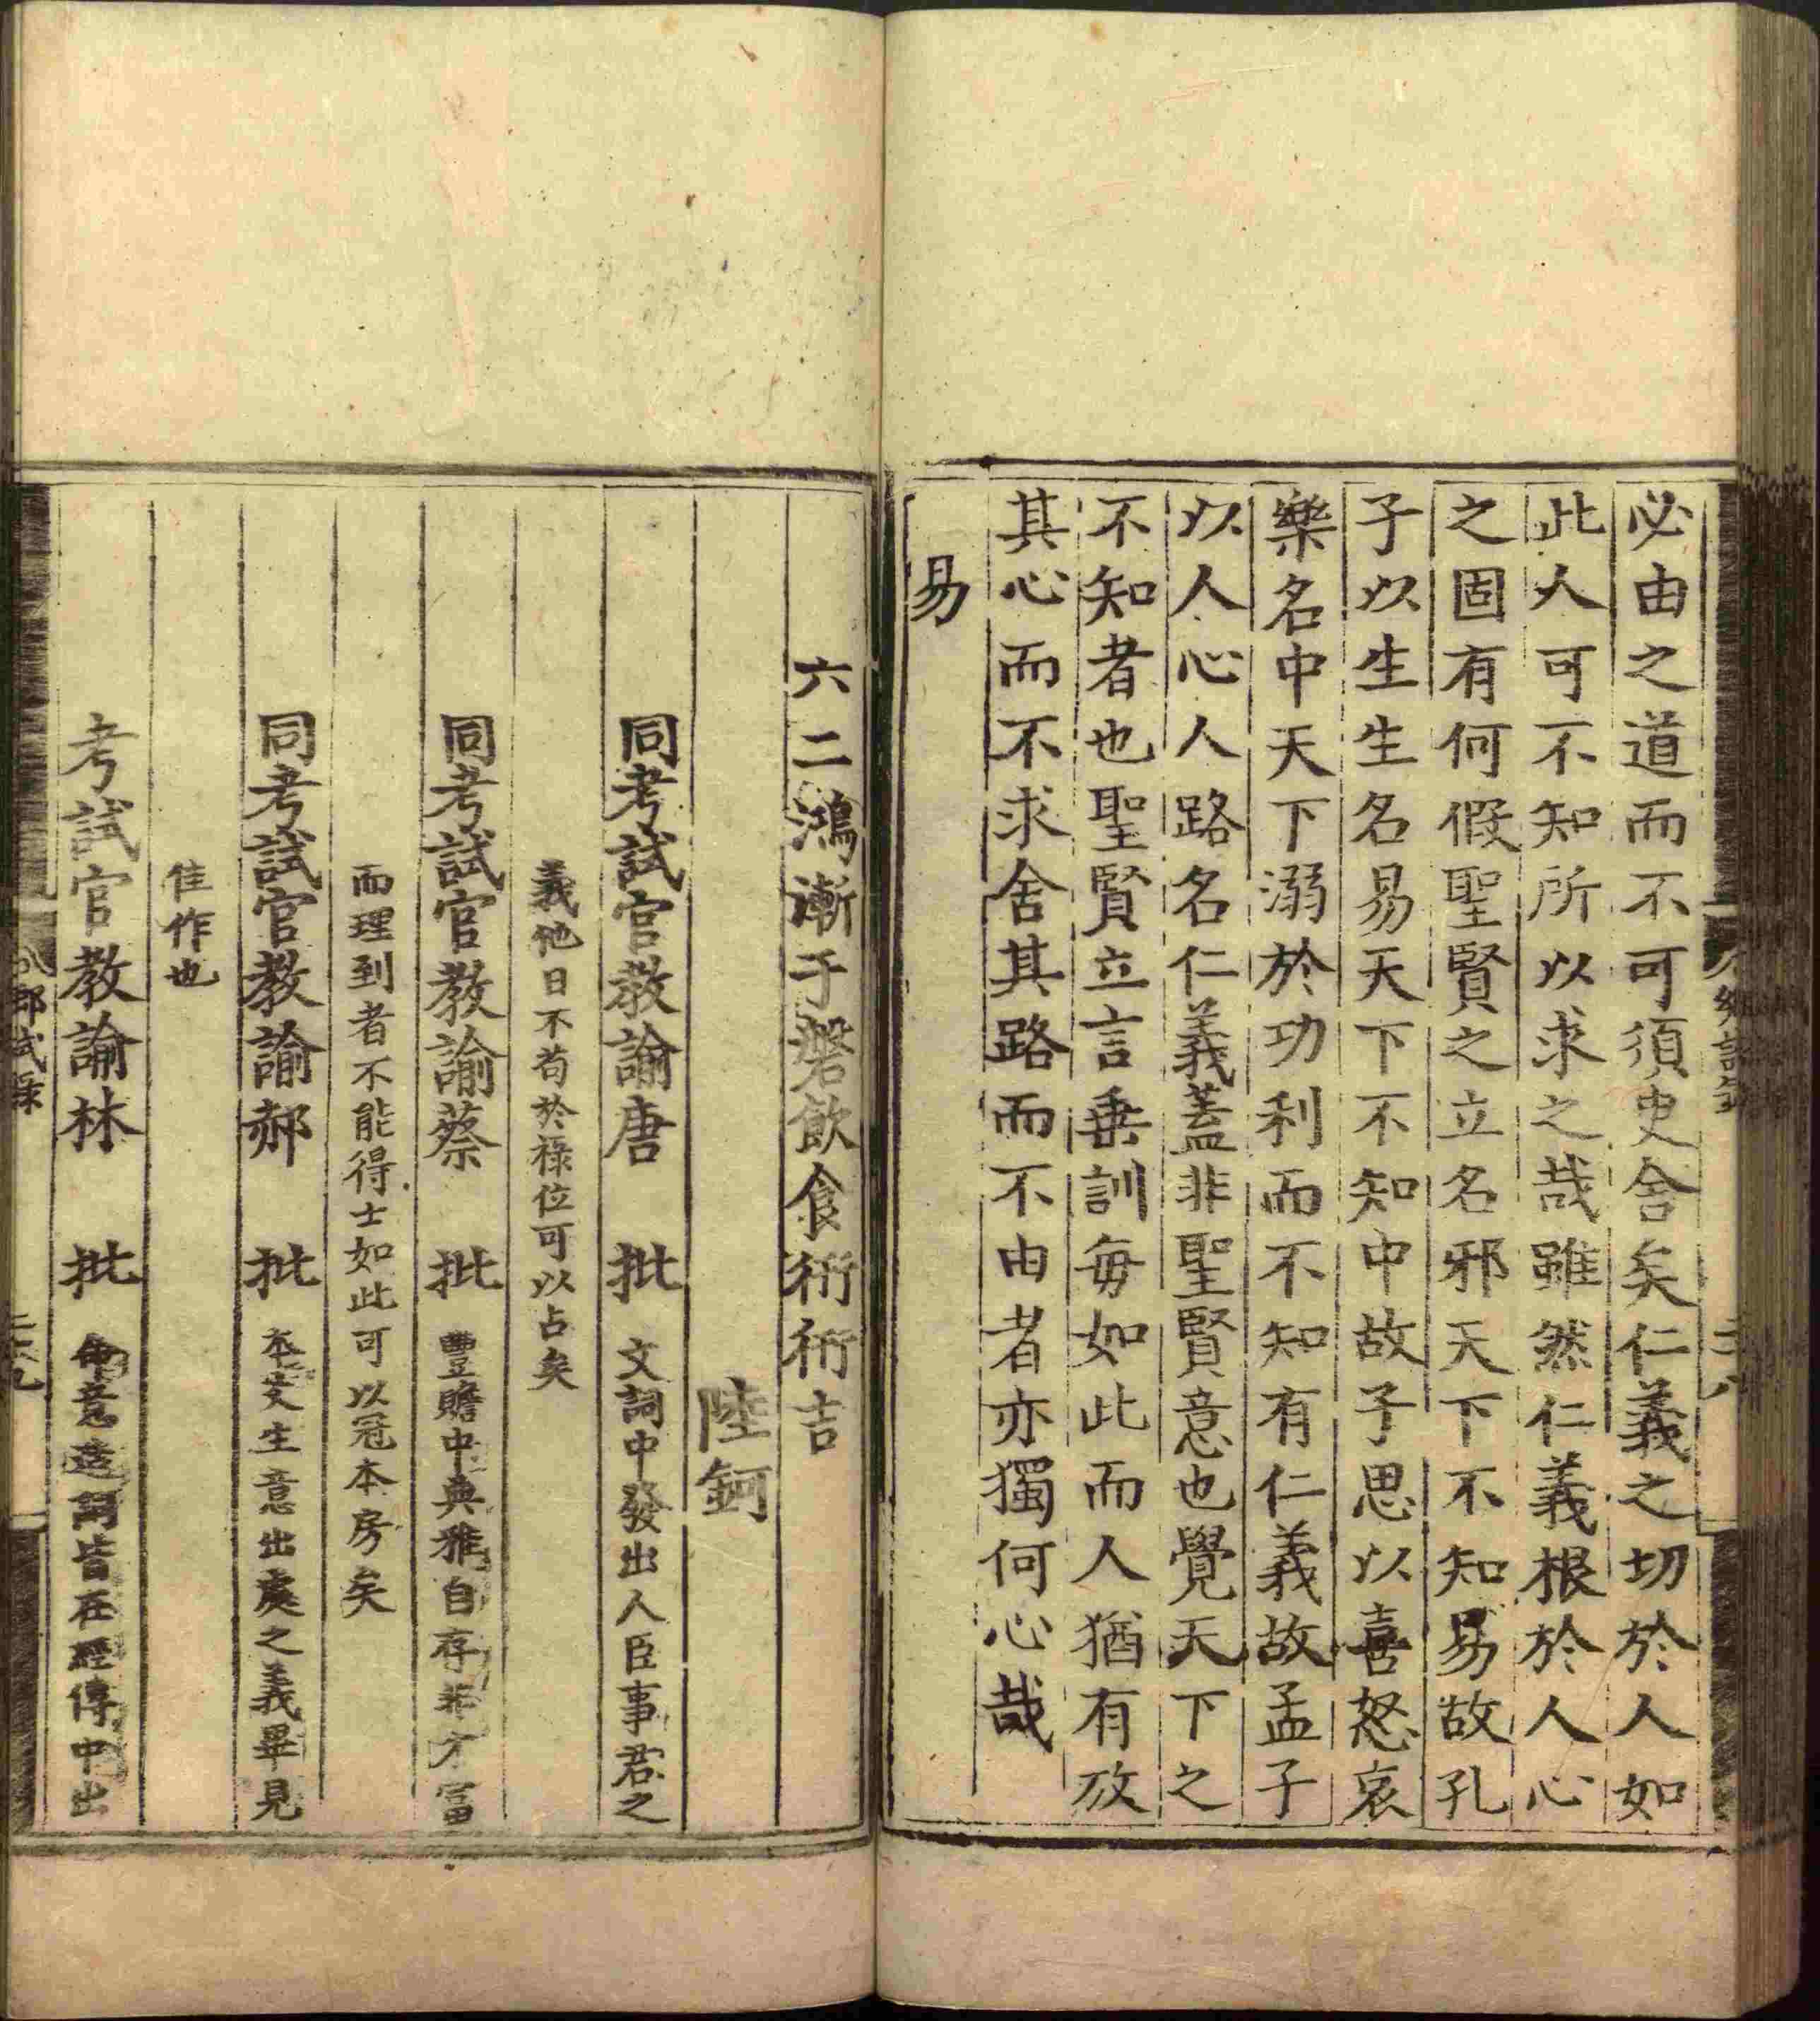 必由之道而不可須臾舍矣仁義之切於人如
此人可不知所以求之哉雖然仁義根於人心
之固有何假聖賢之立名邪天下不知易故孔
子以生生名易天下不知中故子思以喜怒哀
樂名中天下溺於功利而不知有仁義故孟子
以人心人路名仁義蓋非聖賢意也覺天下之
不知者也聖賢立言垂訓每如此而人猶有放
其心而不求舍其路而不由者亦獨何心哉
易
六二鴻漸于磐飲食衎衎吉
陸鈳
同考試官教諭唐 批 文詞中發出人臣事君之
義他日不苟於祿位可以占矣
同考試官教諭蔡 批 豐贍中典雅自存非才富
而理到者不能得士如此可以冠本房矣
同考試官教諭郝 批 本爻生意出處之義畢見
佳作也
考試官教諭林 批 命意造詞皆在經傳中出